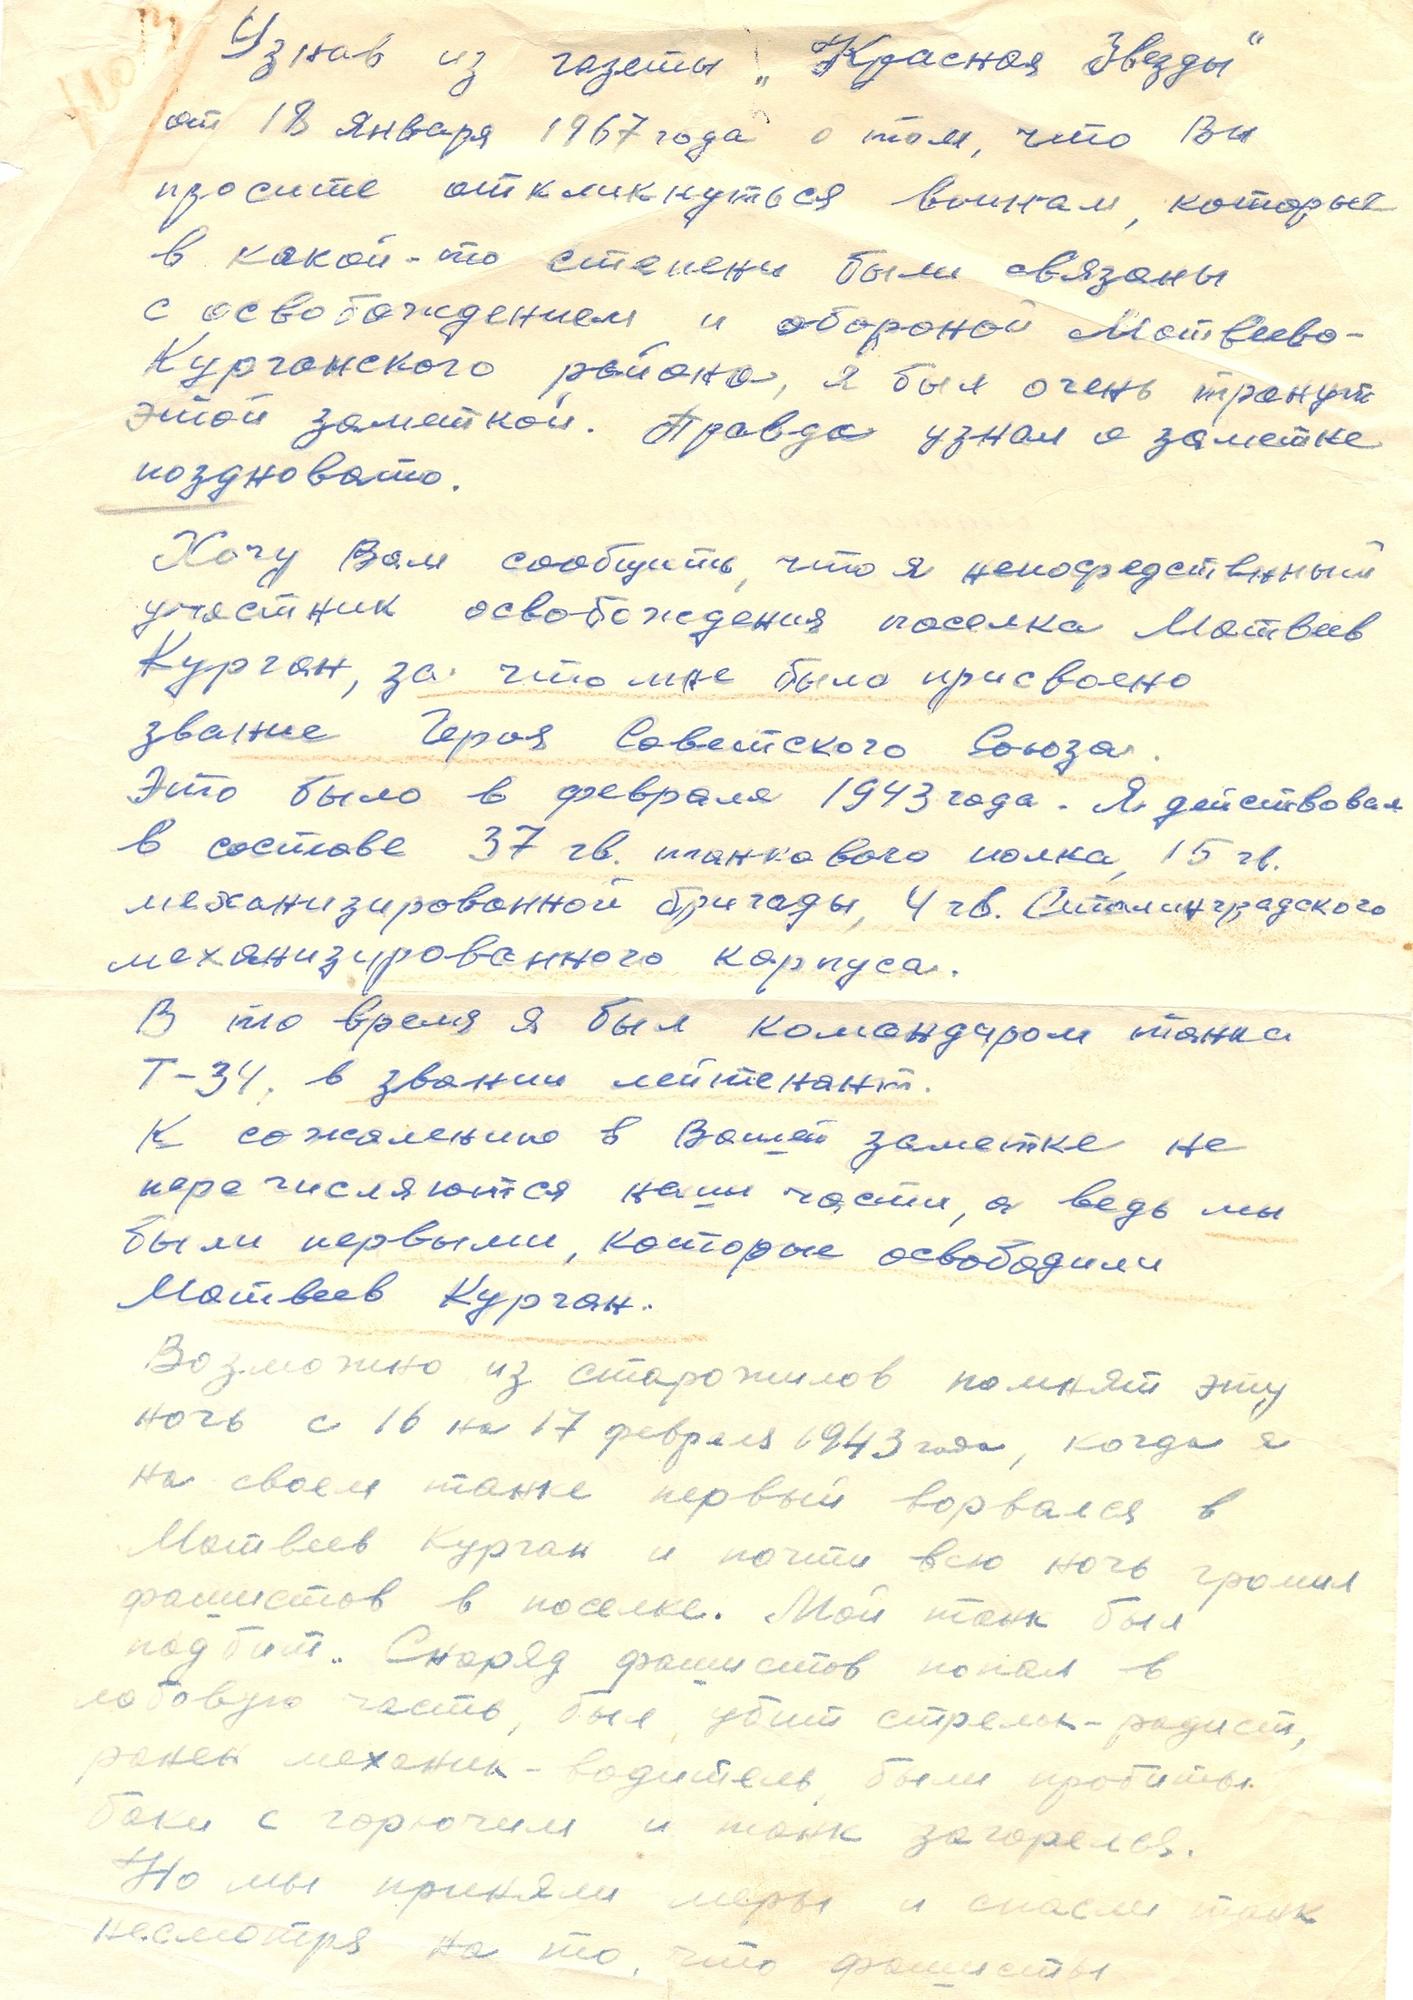 Узнав из газеты „Красная Звезды“
от 18 января 1967 года о том, что Вы
просите откликнуться воинам, которые
в какой-то степени были связаны
с освобождением и обороной Матвеево-
Курганского района, я был очень тронут
этой заметкой. Правда узнал о заметке
поздновато.
Хочу Вам сообщить, что я непосредственный
участник освобождения поселка Матвеев
Курган, за что мне было присвоено
звание Героя Советского Союза.
Это было в феврале 1943 года. Я действовал
в составе 37 гв. танкового полка, 15 гв.
механизированной бригады, 4 гв. Сталинградского
механизированного корпуса.
В то время я был командиром танка
Т-34, в звании лейтенант.
К сожалению в Вашей заметке не
перечисляются наши части, а ведь мы
были первыми, которые освободили
Матвеев Курган.
Возможно из старожилов помнят эту
ночь с 16 на 17 февраля 1943 года, когда я
на своем танке первый ворвался в
Матвеев Курган и почти всю ночь громил
фашистов в поселке. Мой танк был
подбит. Снаряд фашистов попал в
лобовую часть, был убит стрелок-радист,
ранен механик-водитель, были пробиты
баки с горючим и танк загорелся.
Но мы приняли меры и спасли танк
несмотря на то, что фашисты